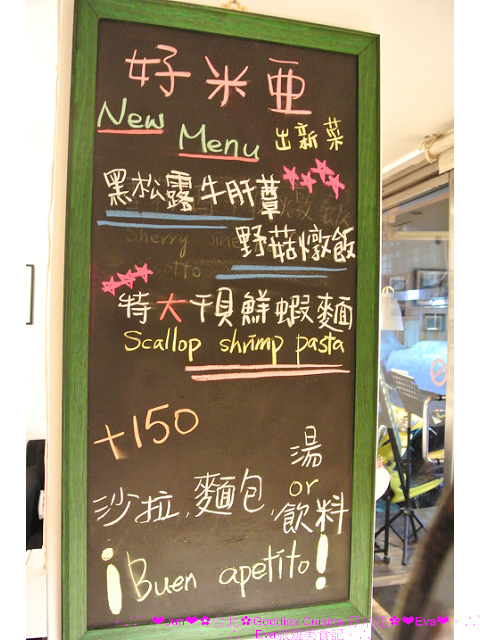 好米亞
New
Menu 出新菜
黑松露牛肝蕈
野菇燉飯
特大干貝鮮蝦麵
Scallop shrimp pasta
+150
沙拉, 麵包, 湯 or 飲料
¡Buen apetito!
Goodies Cuisine
❤Eva❤